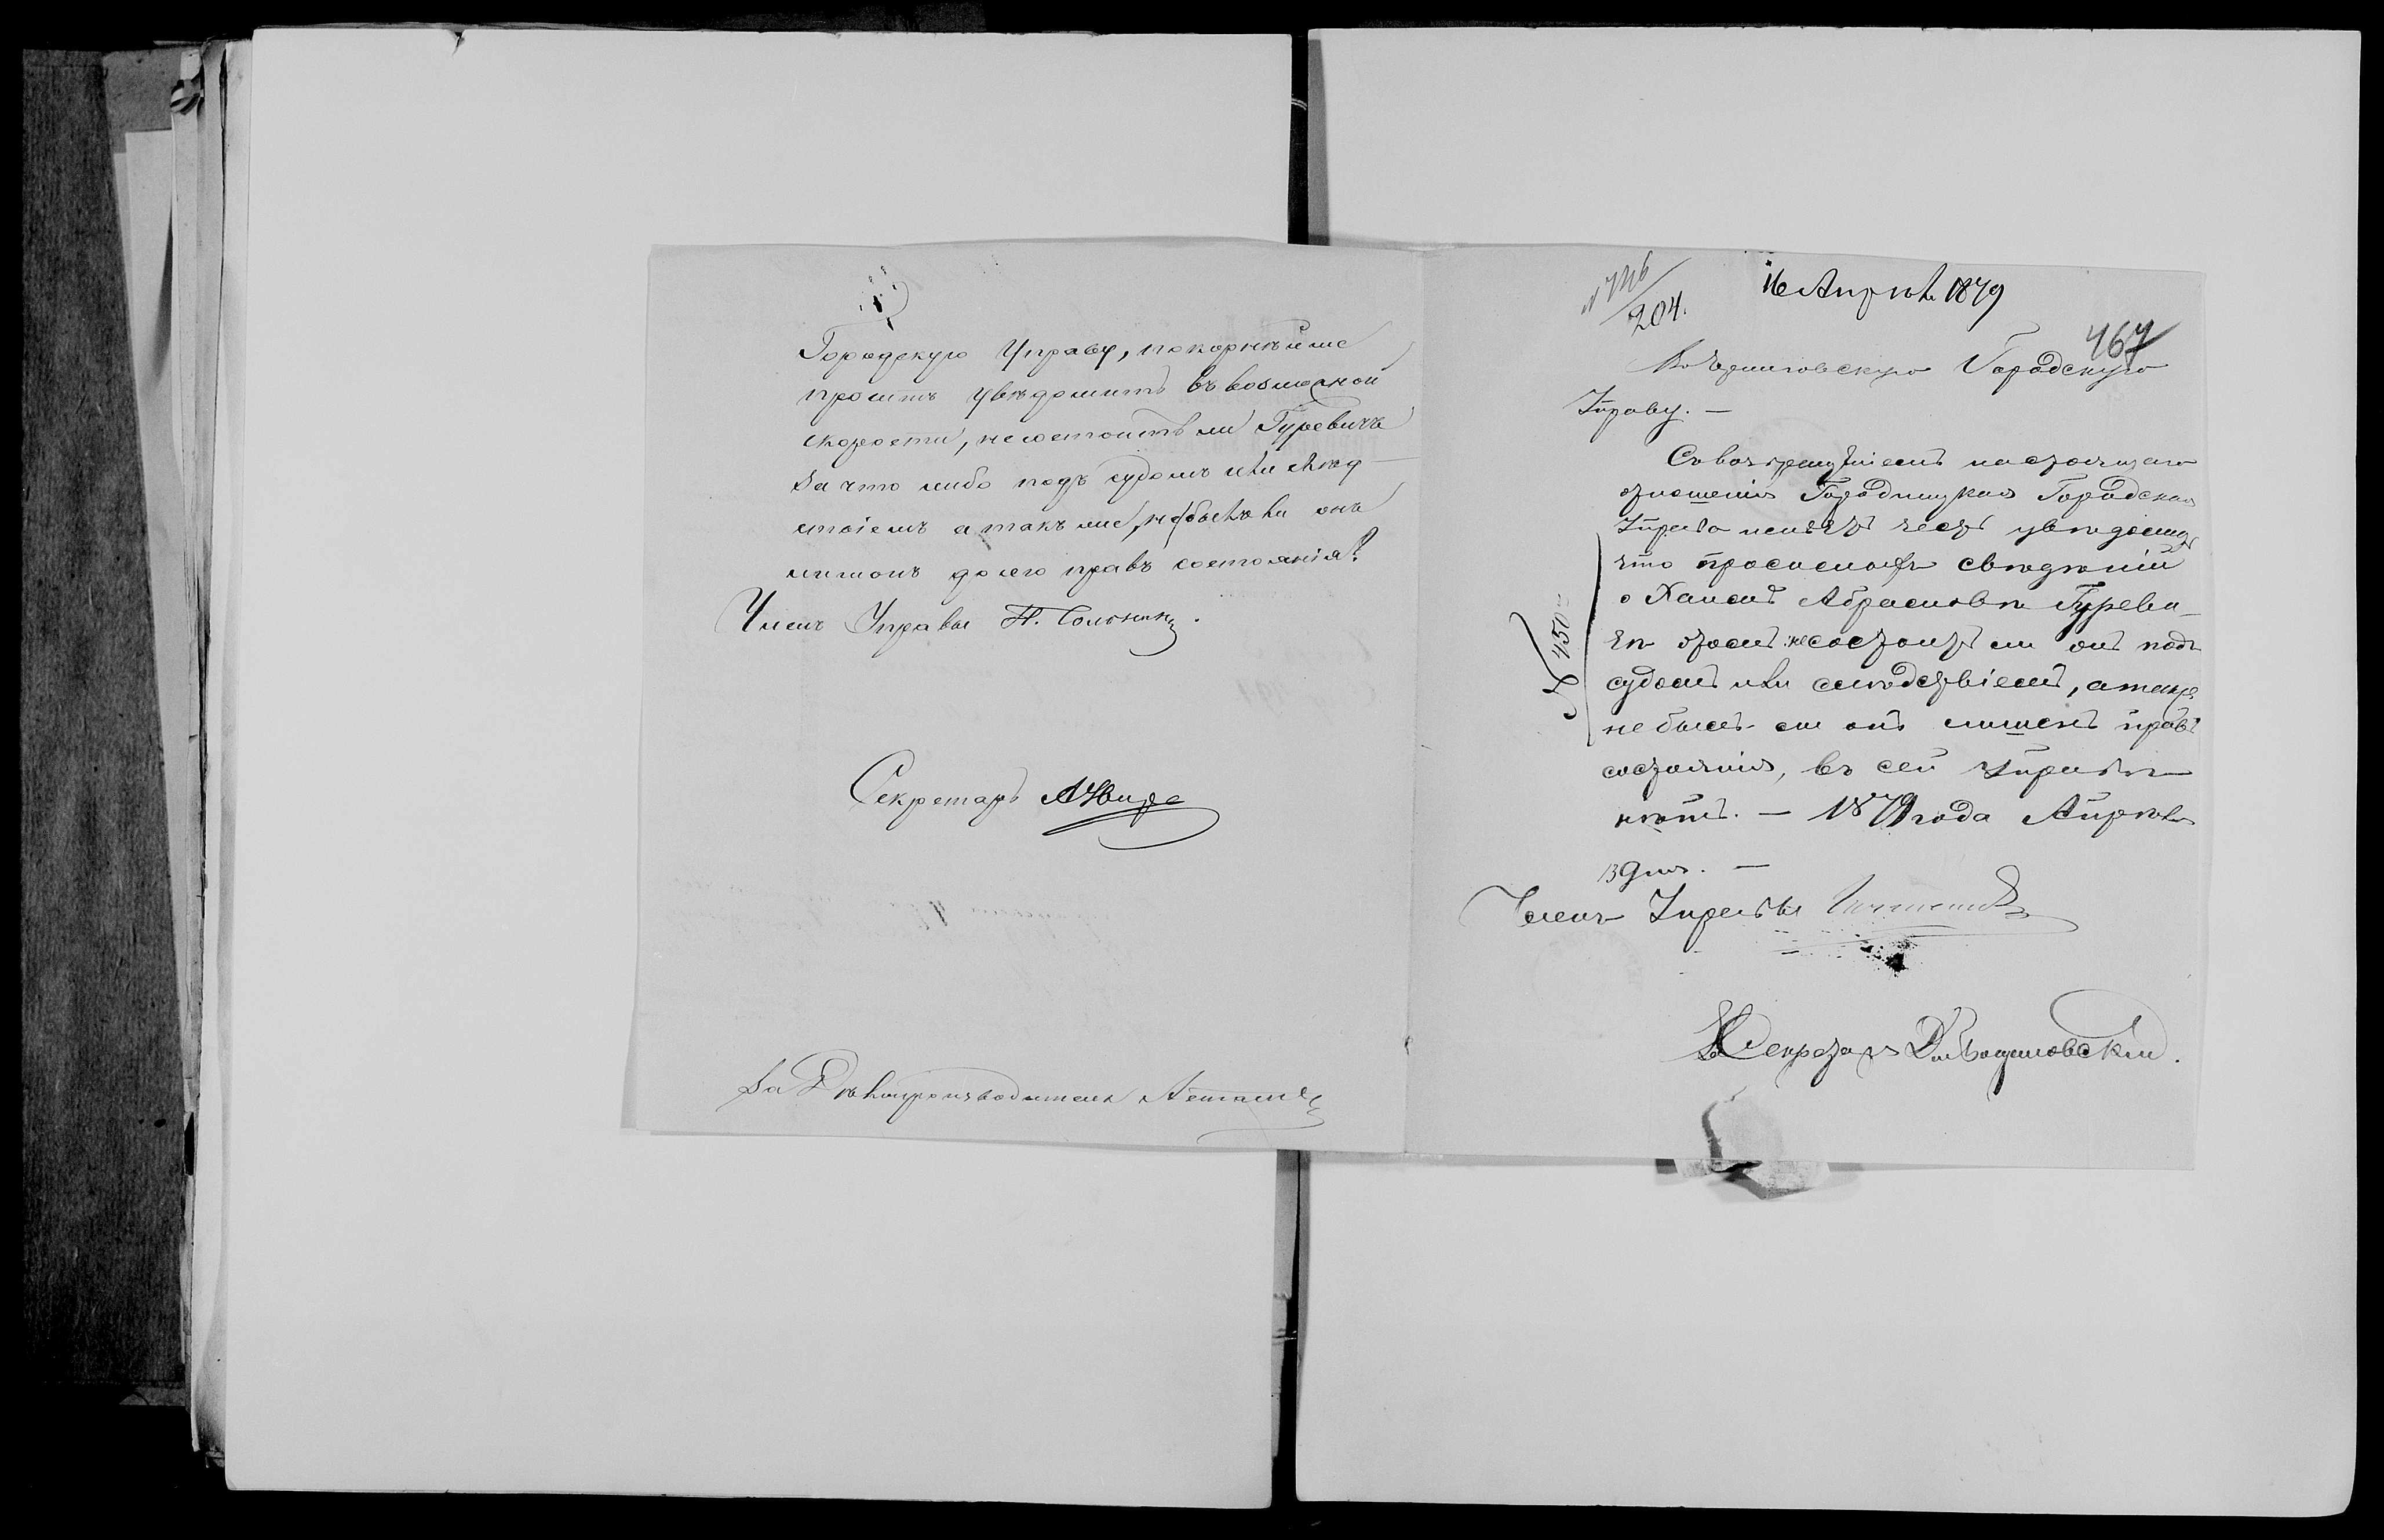 Городскую Управу, покорнѣйше
проситъ увѣдомить въ возможной
скорости, несостоитъ ли Гуревичъ
за что либо подъ судомъ или слѣд-
ствіемъ а такъ же, небылъ ли онъ
лишонъ до сего правъ состоянія?
Членъ Управы
Секретарь
За Дѣлопроизводителя
204.
16 Апрѣля 1879
467
Въ Черниговскую Городскую
Управу. —
Съ возвращеніемъ настоящаго
отношенія Городницкая Городская
Управа имѣетъ честь увѣдомить
что просимыхъ свѣдѣній
о Хаимѣ Абрамовѣ Гуреви-
чѣ о томъ: несостоитъ ли онъ подъ
судомъ или слѣдствіемъ, а также
не былъ ли онъ лишенъ правъ
состоянія, въ сей Управѣ
нѣтъ. — 1879 года Апрѣля
13 дня. —
№ 450
Членъ Управы
Секретарь